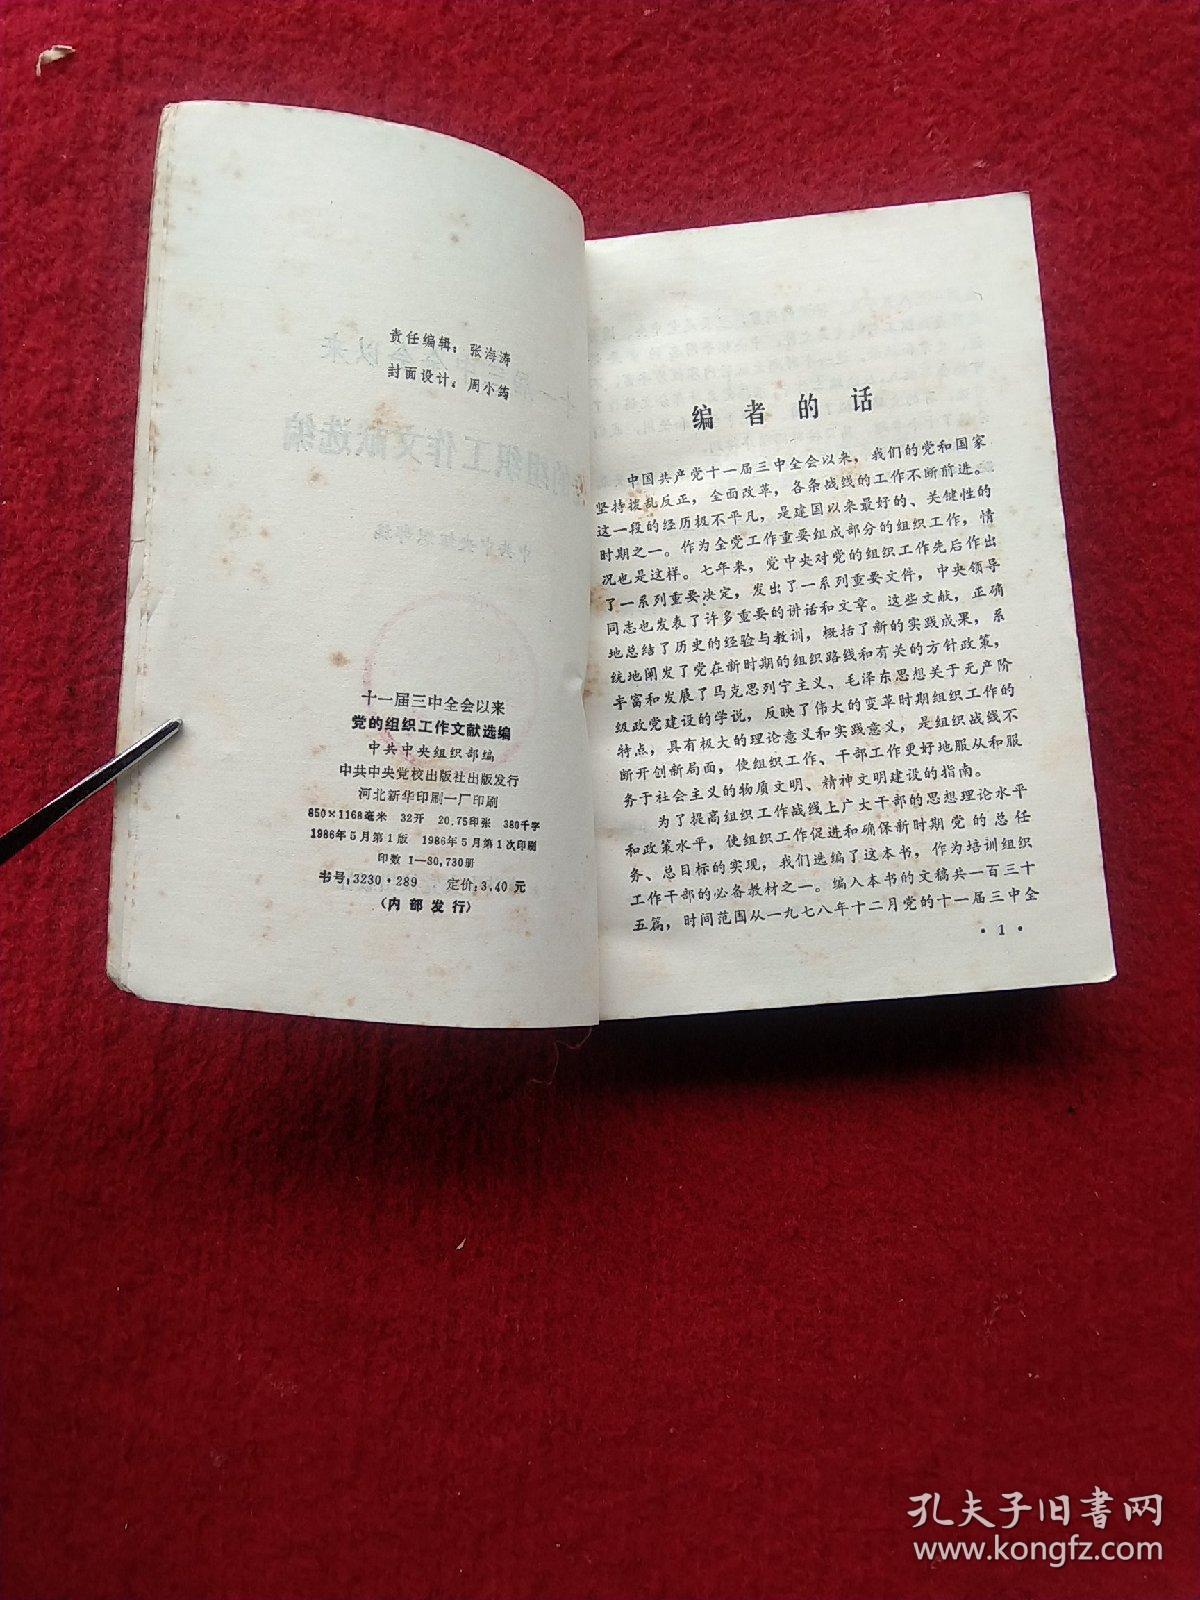 责任编辑：张海涛
封面设计：周小筠
十一届三中全会以来
党的组织工作文献选编
中共中央组织部编
中共中央党校出版社出版发行
河北新华印刷一厂印刷
850×1168毫米 32开 20.75印张 380千字
1986年5月第1版 1986年5月第1次印刷
印数1—30,730册
书号：3230·289 定价：3.40元
（内部发行）
编者的话
中国共产党十一届三中全会以来，我们的党和国家
坚持拨乱反正，全面改革，各条战线的工作不断前进。
这一段的经历极不平凡，是建国以来最好的、关键性的
时期之一。作为全党工作重要组成部分的组织工作，情
况也是这样。七年来，党中央对党的组织工作先后作出
了一系列重要决定，发出了一系列重要文件，中央领导
同志也发表了许多重要的讲话和文章。这些文献，正确
地总结了历史的经验与教训，概括了新的实践成果，系
统地阐发了党在新时期的组织路线和有关的方针政策，
丰富和发展了马克思列宁主义、毛泽东思想关于无产阶
级政党建设的学说，反映了伟大的变革时期组织工作的
特点，具有极大的理论意义和实践意义，是组织战线不
断开创新局面，使组织工作、干部工作更好地服从和服
务于社会主义的物质文明、精神文明建设的指南。
为了提高组织工作战线上广大干部的思想理论水平
和政策水平，使组织工作促进和确保新时期党的总任
务、总目标的实现，我们选编了这本书，作为培训组织
工作干部的必备教材之一。编入本书的文稿共一百三十
五篇，时间范围从一九七八年十二月党的十一届三中全
·1·
孔夫子旧书网
www.kongfz.com